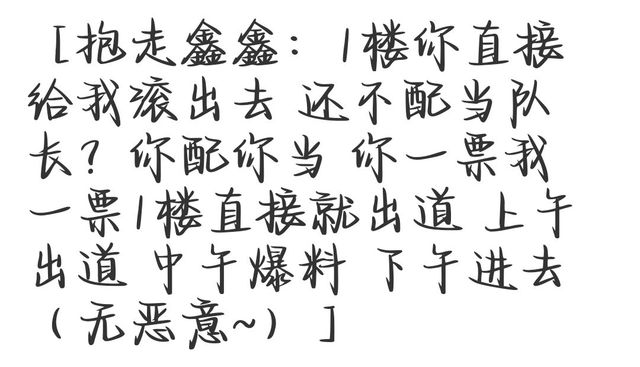 [抱走鑫鑫：1楼你直接
给我滚出去 还不配当队
长？你配你当 你一票我
一票1楼直接就出道 上午
出道 中午爆料 下午进去
（无恶意~）]